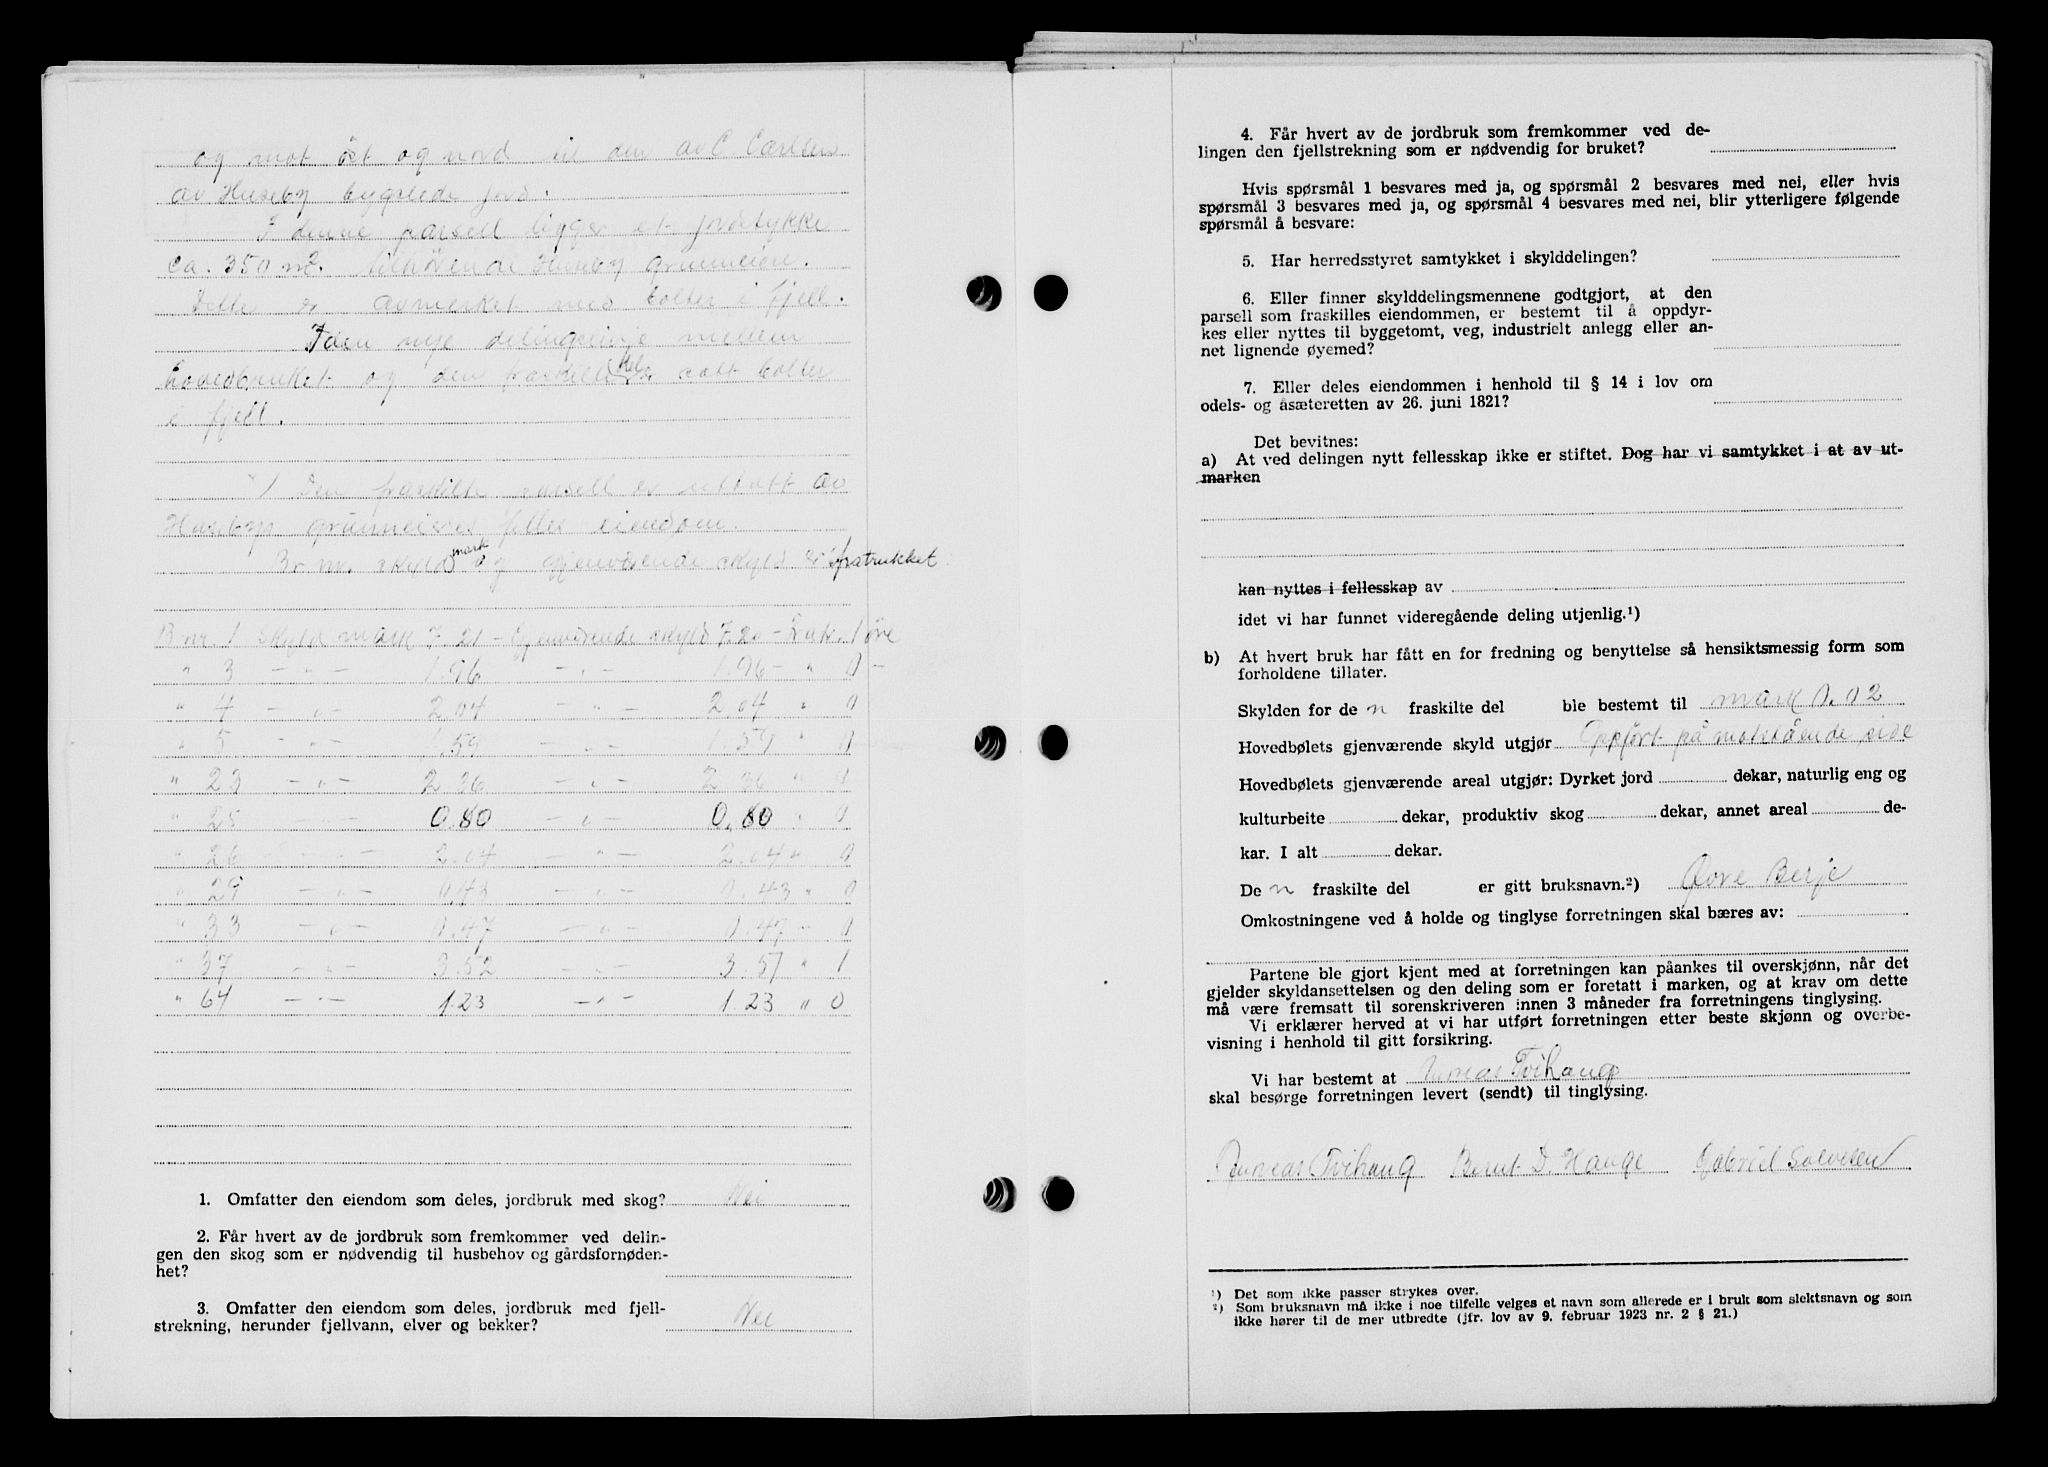 og mot øst og nord til den av C. Carlsen
av Huseby bygslede jord.
I denne parsell ligger et jordstykke
ca. 350 m². tilhørende Huseby grunneiere.
Dette er avmerket med bolter i fjell.
I den nye delingslinje mellem
hovedbruket og den fraskilte del er satt bolter
i fjell.
1 Den fraskilte parsell er uttatt av
Husebys grunneieres felles eiendom.
Br. nr. skyld mark og gjenværende skyld er fratrukket.
B nr. 1 skyld mark 7.21 - Gjenværende skyld 7.20 - Fratr. 1 øre
" 3 - " - 1.96 - " - 1.96 - " 0 -
" 4 - " - 2.04 - " - 2.04 " 0
" 5 - " - 1.59 - " - 1.59 " 0
" 23 - " - 2.36 - " - 2.36 " 0
" 25 - " - 0.80 - " - 0.80 " 0
" 26 - " - 2.04 - " - 2.04 " 0
" 29 - " - 0.43 - " - 0.43 " 0
" 33 - " - 0.47 - " - 0.47 " 0
" 37 - " - 3.52 - " - 3.51 " 1
" 64 - " - 1.23 - " - 1.23 " 0
1. Omfatter den eiendom som deles, jordbruk med skog? Nei
2. Får hvert av de jordbruk som fremkommer ved delin-
gen den skog som er nødvendig til husbehov og gårdsfornøden-
het?
3. Omfatter den eiendom som deles, jordbruk med fjell-
strekning, herunder fjellvann, elver og bekker? Nei
4. Får hvert av de jordbruk som fremkommer ved de-
lingen den fjellstrekning som er nødvendig for bruket?
Hvis spørsmål 1 besvares med ja, og spørsmål 2 besvares med nei, eller hvis
spørsmål 3 besvares med ja, og spørsmål 4 besvares med nei, blir ytterligere følgende
spørsmål å besvare:
5. Har herredsstyret samtykket i skylddelingen?
6. Eller finner skylddelingsmennene godtgjort, at den
parsell som fraskilles eiendommen, er bestemt til å oppdyr-
kes eller nyttes til byggetomt, veg, industrielt anlegg eller an-
net lignende øyemed?
7. Eller deles eiendommen i henhold til § 14 i lov om
odels- og åsæteretten av 26. juni 1821?
Det bevitnes:
a) At ved delingen nytt fellesskap ikke er stiftet. Dog har vi samtykket i at av ut-
marken
kan nyttes i fellesskap av
idet vi har funnet videregående deling utjenlig.¹)
b) At hvert bruk har fått en for fredning og benyttelse så hensiktsmessig form som
forholdene tillater.
Skylden for de n fraskilte del ble bestemt til mark 0.02
Hovedbølets gjenværende skyld utgjør Oppført på motstående side
Hovedbølets gjenværende areal utgjør: Dyrket jord dekar, naturlig eng og
kulturbeite dekar, produktiv skog dekar, annet areal de-
kar. I alt dekar.
De n fraskilte del er gitt bruksnavn.²) Øvre Berje
Omkostningene ved å holde og tinglyse forretningen skal bæres av:
Partene ble gjort kjent med at forretningen kan påankes til overskjønn, når det
gjelder skyldansettelsen og den deling som er foretatt i marken, og at krav om dette
må være fremsatt til sorenskriveren innen 3 måneder fra forretningens tinglysing.
Vi erklærer herved at vi har utført forretningen etter beste skjønn og overbe-
visning i henhold til gitt forsikring.
Vi har bestemt at Andreas Tvihaug
skal besørge forretningen levert (sendt) til tinglysing.
Andreas Tvihaug Bernt D. Hauge Gabriel Salvesen
¹) Det som ikke passer strykes over.
²) Som bruksnavn må ikke i noe tilfelle velges et navn som allerede er i bruk som slektsnavn og som
ikke hører til de mer utbredte (jfr. lov av 9. februar 1923 nr. 2 § 21.)